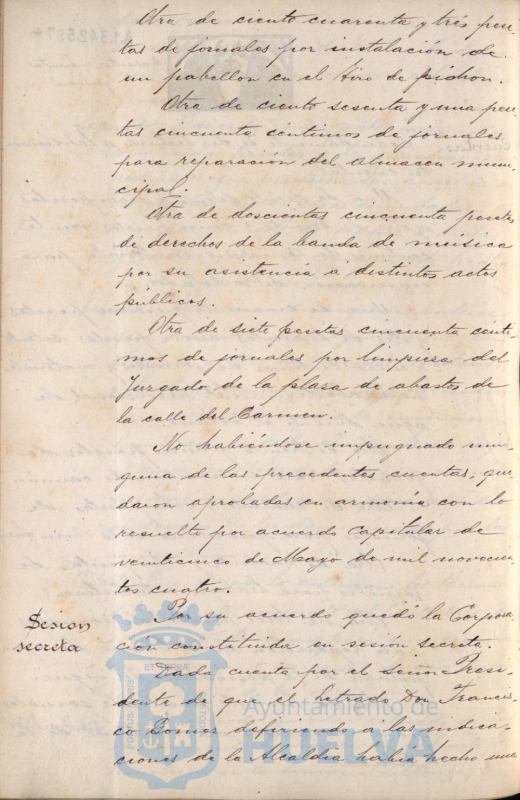 Otra de ciento cuarenta y trés pese-
tas de jornales por instalación de
un pabellon en el tiro de pichon.
Otra de ciento sesenta y una pese-
tas cincuenta centimos de jornales
para reparación del almacen muni-
cipal.
Otra de doscientas cincuenta pesetas
de derechos de la banda de música
por su asistencia á distintos actos
públicos.
Otra de siete pesetas cincuenta centi-
mos de jornales por limpiesa del
Juzgado de la plasa de abastos de
la calle del Carmen.
No habiéndose impugnado nin-
guna de las precedentes cuentas, que-
daron aprobadas en armonía con lo
resuelto por acuerdo capitular de
veinticinco de Mayo de mil novocien-
tos cuatro.
Sesion
secreta
Por su acuerdo quedó la Corpora-
ción constituida en sesión secreta.
Dada cuenta por el Señor Presi-
dente de que el letrado Don Francis-
co Gomez defiriendo a las indica-
ciones de la Alcaldia habia hecho una
Ayuntamiento de
HUELVA